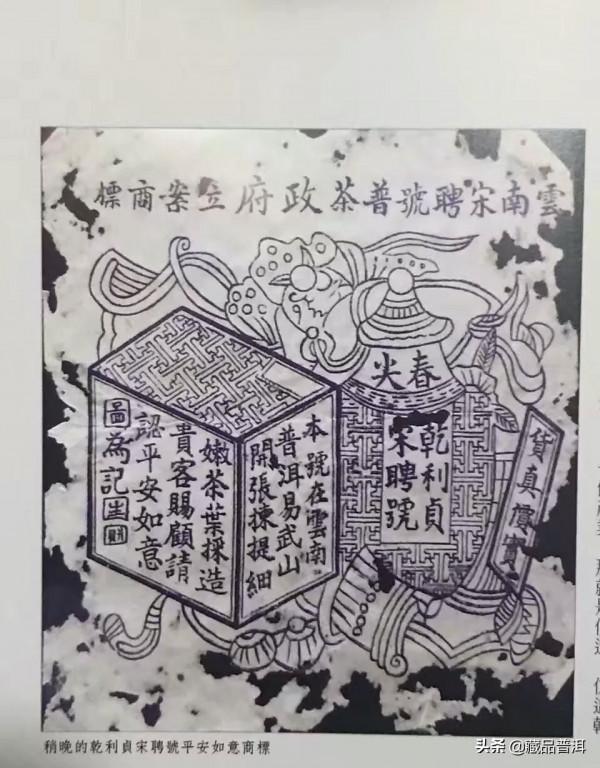 雲南宋聘號普茶政府立案商標
春尖
乾利貞
宋聘號
貨真價實
本號在雲南
普洱易武山
開張揀提細
嫩茶葉採造
貴客賜顧請
認平安如意
圖為記
稍晚的乾利貞宋聘號平安如意商標
头条 @藏品普洱